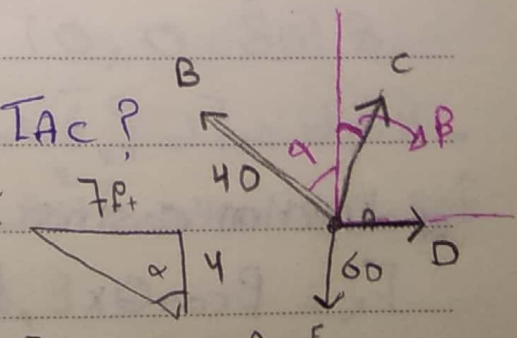 B
C
TAC?
α
β
40
7ft
α
4
60
D